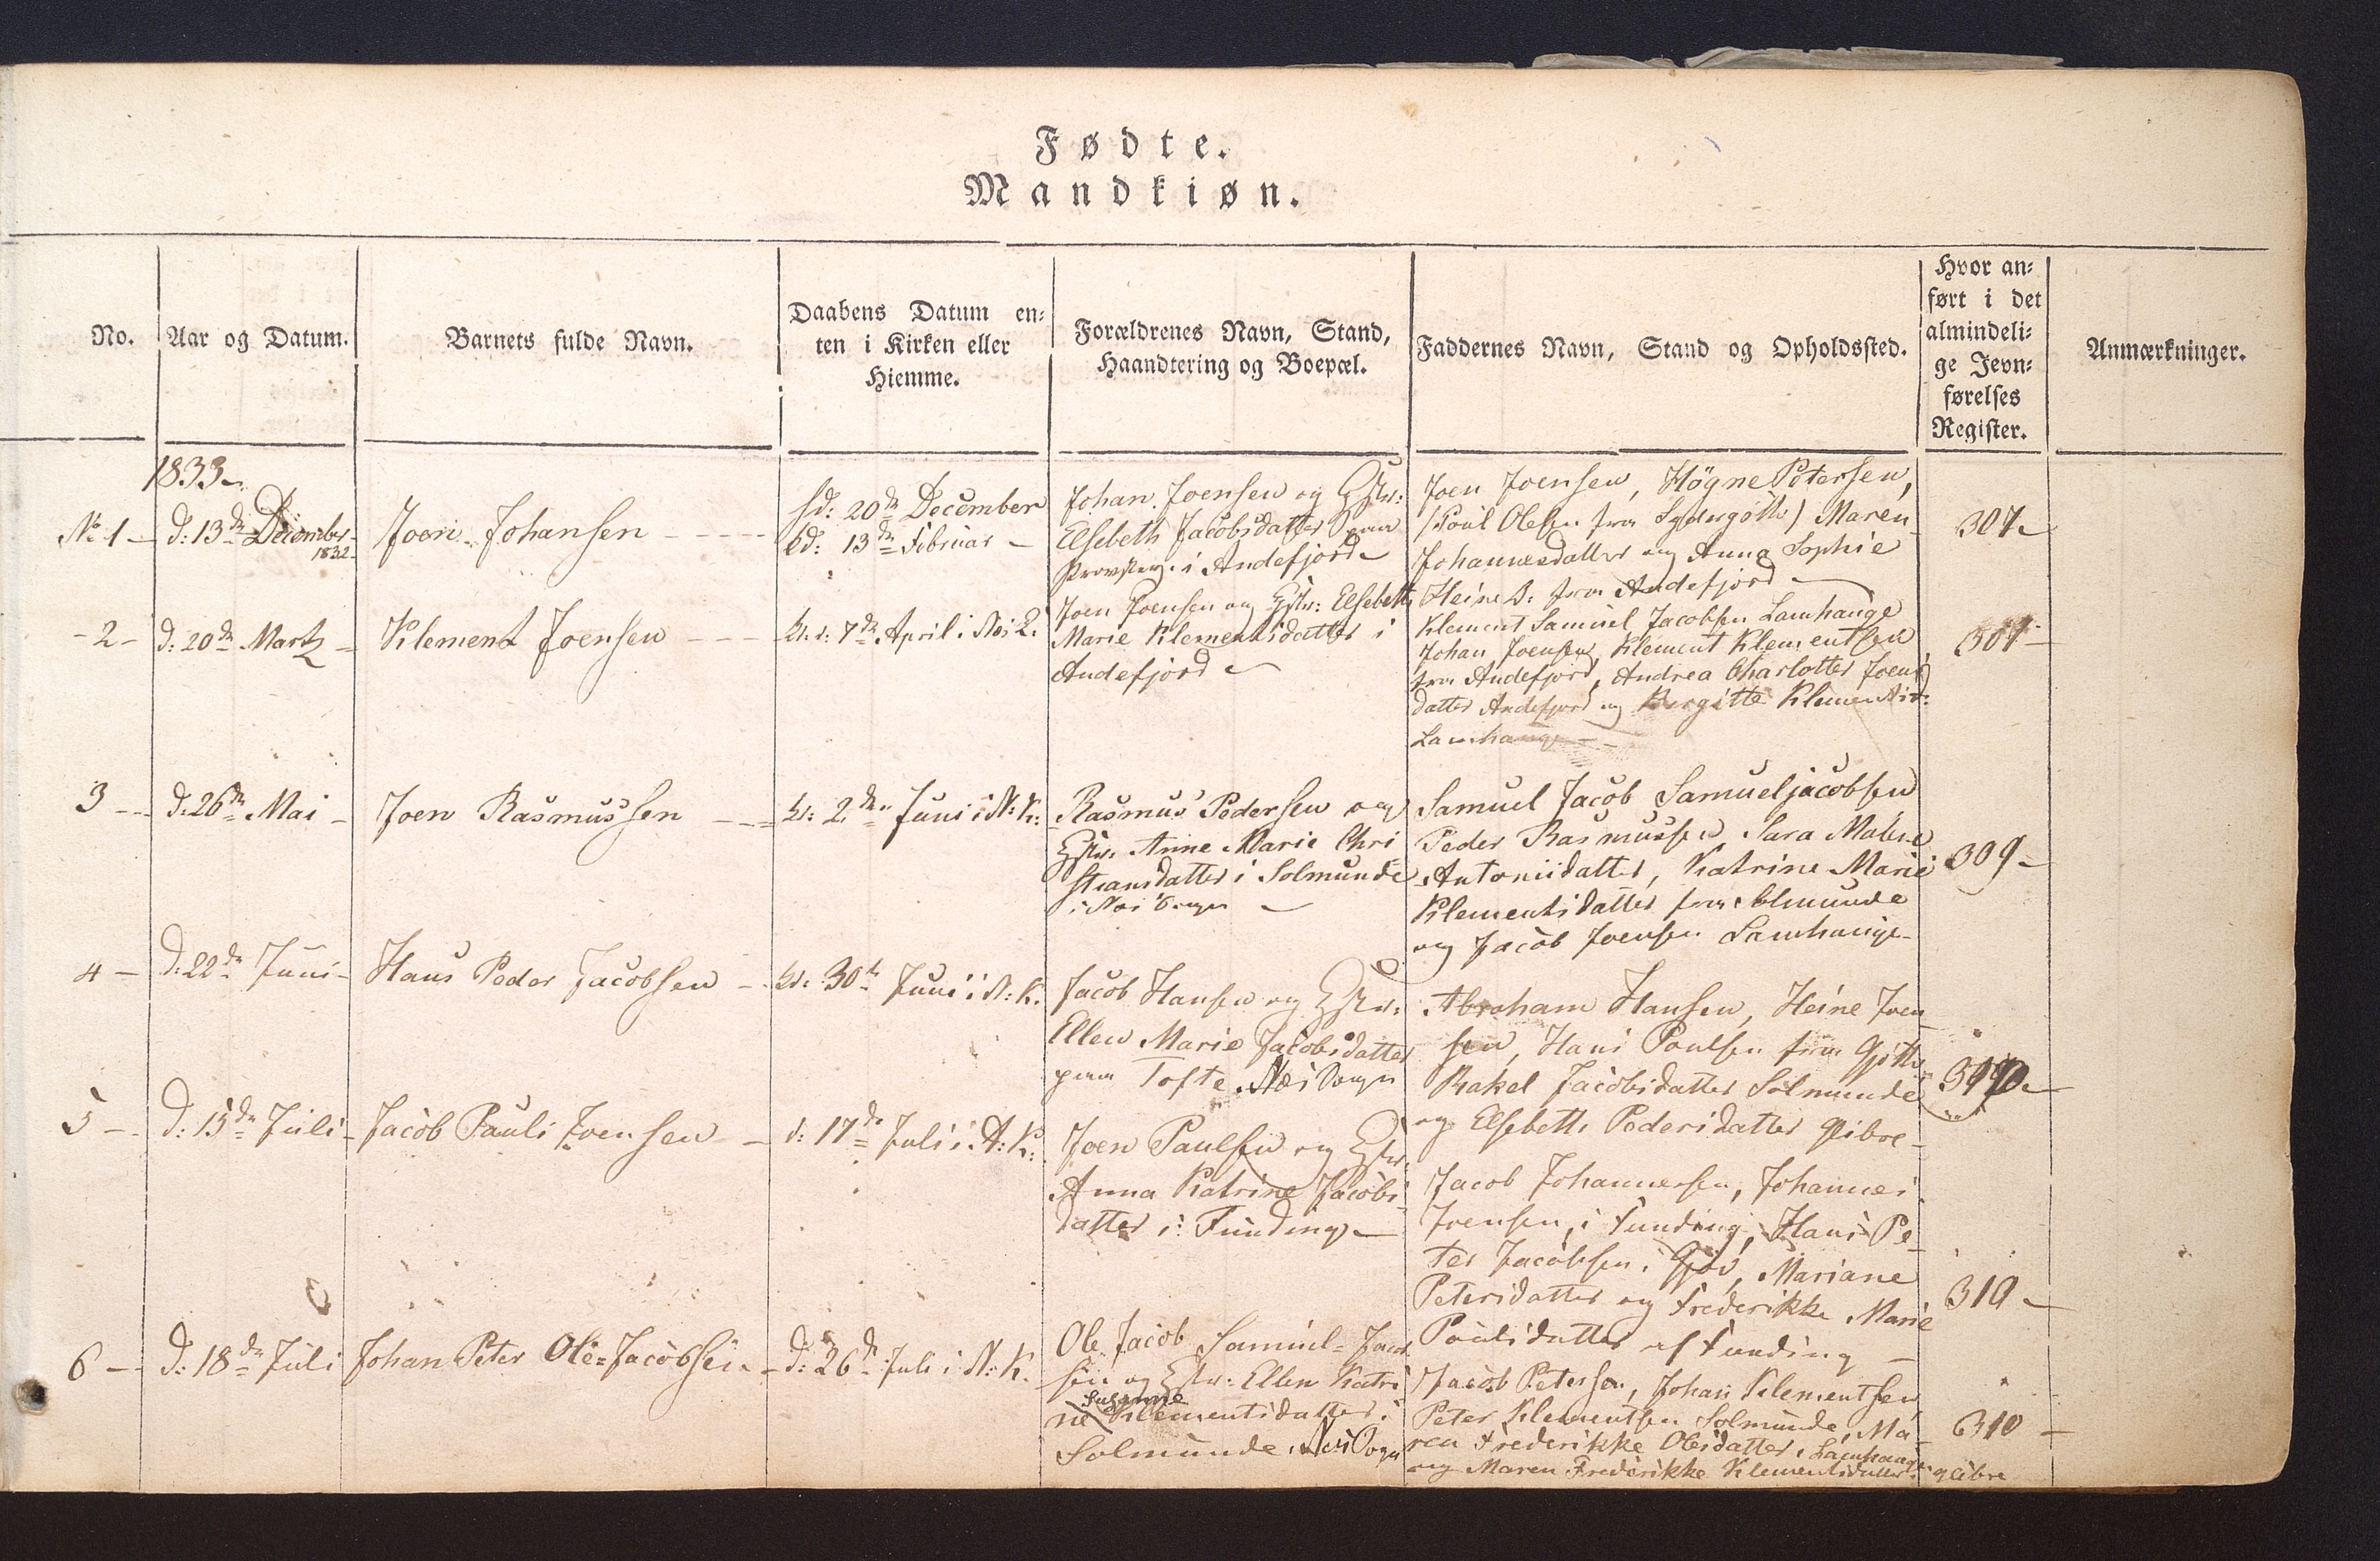 Fødte.
Mandkiøn.
No.
Aar og Datum.
Barnets fulde Navn.
Daabens Datum en-
ten i Kirken eller
Hiemme.
Forældrenes Navn, Stand,
Haandtering og Boepæl.
Faddernes Navn, Stand og Opholdssted.
Hvor an-
ført i det
almindeli-
ge Jevn-
førelses
Register.
Anmærkninger.
1833
No 1 - d: 13de December
1832
Joen Johansen
hd: 20de December
kd: 13de Februar
Johan Joensen og Hstr:
Elsebeth Jacobsdatter paa
i Andefjord
Joen Joensen, Högne Petersen,
(Poul Olesen fra Sydergøthe) Maren
Johannesdatter og Anna Sophie
Heine D. fra Andefjord
307
- 2 - d: 20de Martz
Klement Joensen
7de April i
Joen Joensen og Hstr: Elsebeth
Marie Klementsdatter i
Andefjord
Klement Samuel Jacobsen Lamhauge
Johan Joensen, Klement Klementsen
fra Andefjord, Andrea Charlotter Joens
datter Andefjord og Birgitte Klementsd:
Lamhauge
307
3 - d: 26de Mai
Joen Rasmussen
2de Juni i N: K:
Rasmus Pedersen og
Hstr. Anne Marie Chri
stiansdatter i Solmunde
i Næs Sogn
Samuel Jacob Samueljacobsen
Peder Rasmussen, Sara Malene
Antonisdatter, Katrine Marie
Klementsdatter fra Solmunde
og Jacob Joensen Lamhauge
309
4 - d: 22de Juni
Hans Peder Jacobsen
30te Juni i N: K.
Jacob Hansen og Hstr:
Ellen Marie Jacobsdatter
paa Tofte Næs Sogn
Abraham Hansen, Heine Joen
sen, Hans Poulsen fra Gjøthe
Rakel Jacobsdatter Solmunde
og Elsebeth Pedersdatter Glibre
310
5 - d: 15de Juli
Jacob Pauli Joensen
d: 17de Juli i A: K:
Joen Paulsen og Hstr.
Anna Katrine Jacobs
datter i Funding
Jacob Johannesen, Johannes
Joensen, i Funding, Hans Pe
ter Jacobsen i Gjov, Mariane
Petersdatter og Frederikke Marie
Poulsdatter af Funding
310
6 - d: 18de Juli
Johan Peter Ole=Jacobsen
d: 26de Juli i N: K.
Ole Jacob Samuel=Jacob
sen og Hstr: Ellen Katri
Susanne
ne Klementsdatter i
Solmunde Næs Sogn
Jacob Petersen, Johan Klementsen,
Peter Klementsen Solmunde, Ma
ren Frederikke Olesdatter, Lamhauge
og Maren Frederikke Klementsdatter Glibre
310